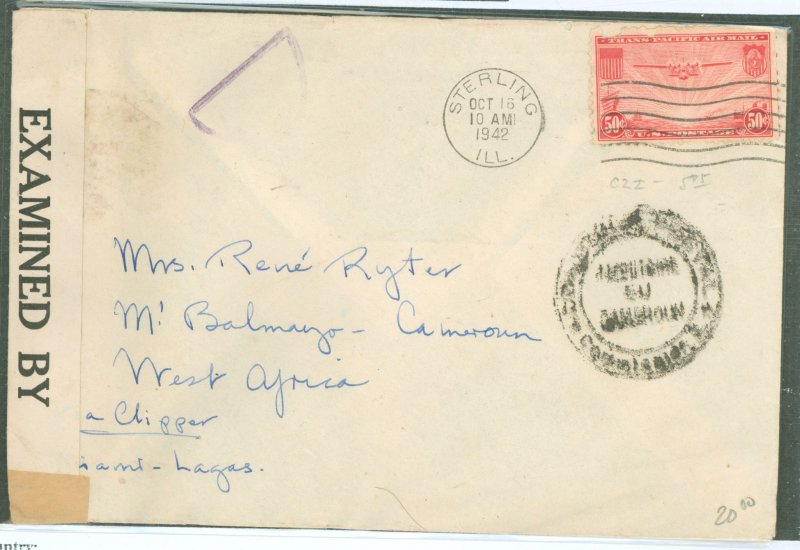 EXAMINED BY
STERLING
OCT 16
10 AM
1942
ILL.
TRANS-PACIFIC AIR MAIL
50¢ U.S. POSTAGE 50¢
C22 - 5.75
Mrs. René Ryter
M' Balmayo - Cameroun
West Africa
a Clipper
iami - Lagos.
TERRITOIRE
DU
CAMEROUN
20.00
untry: